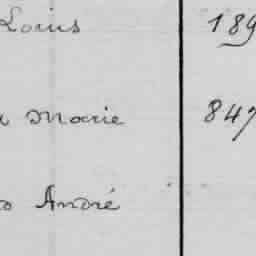 Louis 189
Marie 847
André